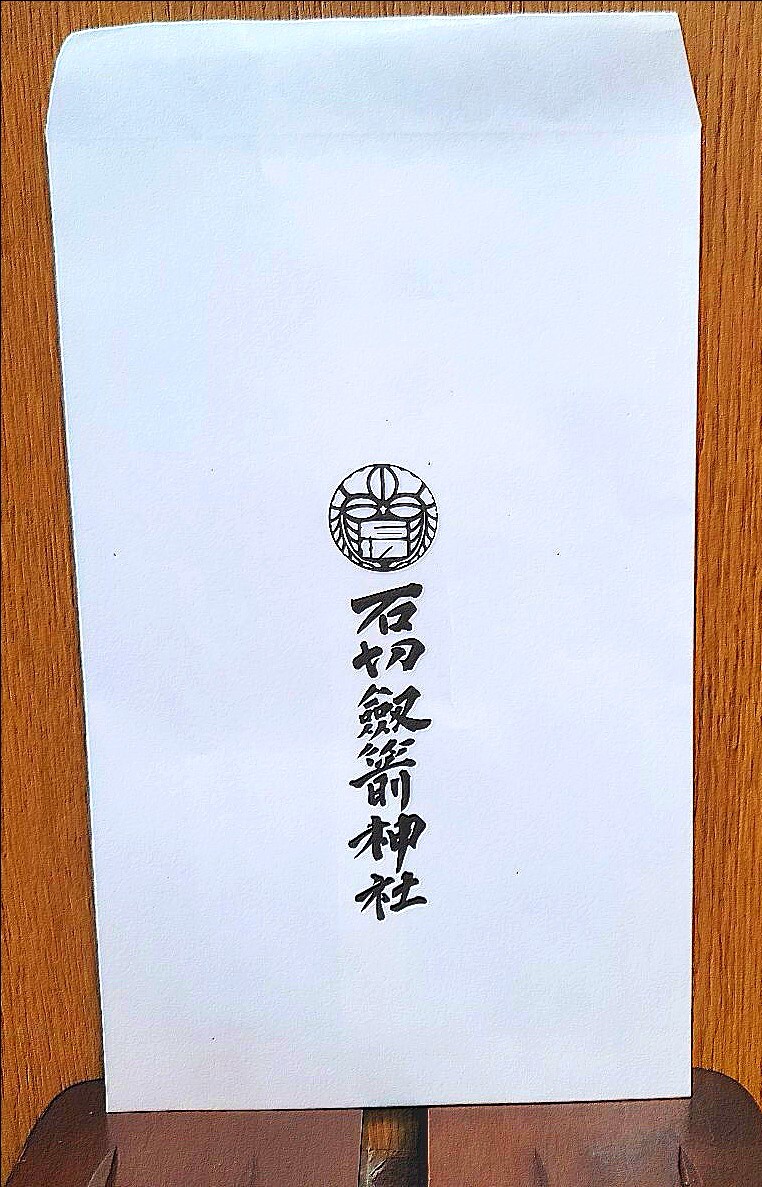 石切劔箭神社